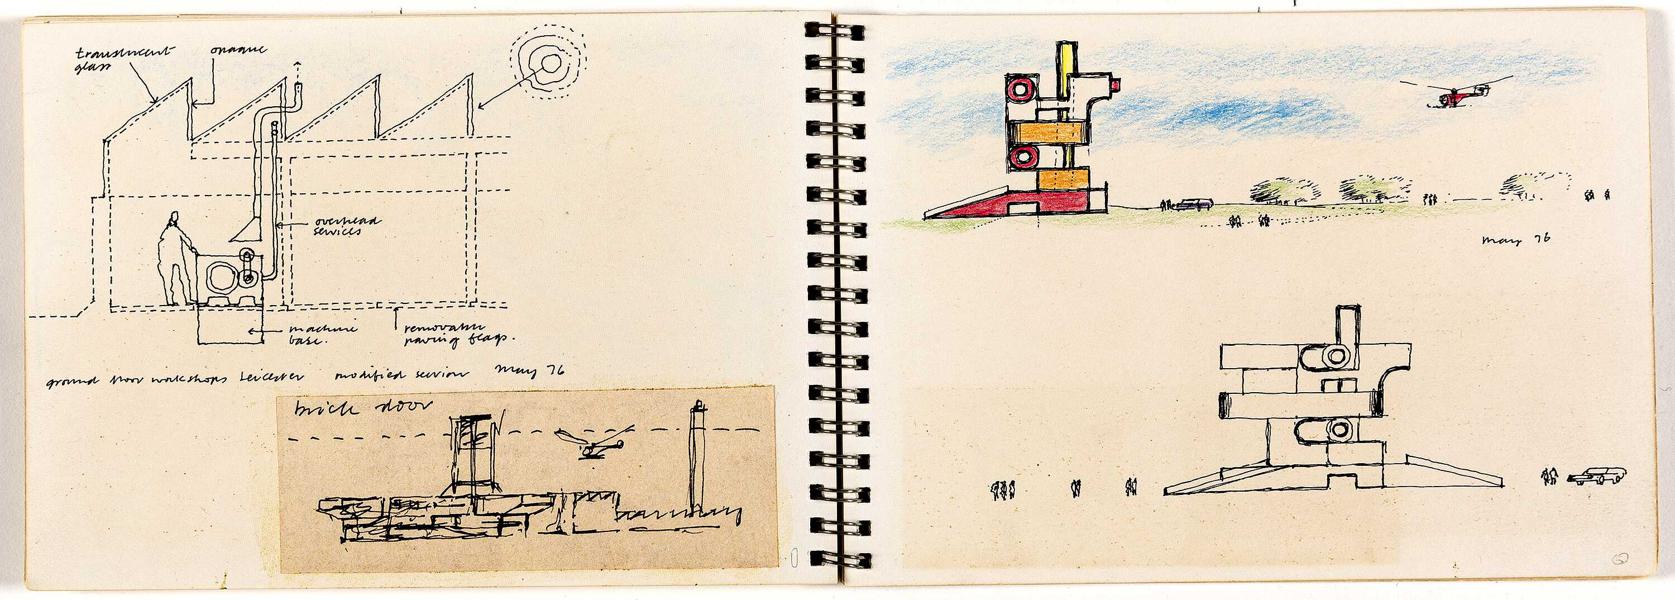 translucent
glass
opaque
overhead
services
machine
base.
removable
paving flags.
ground floor workshops Leicester modified section May 76
brick door
may 76